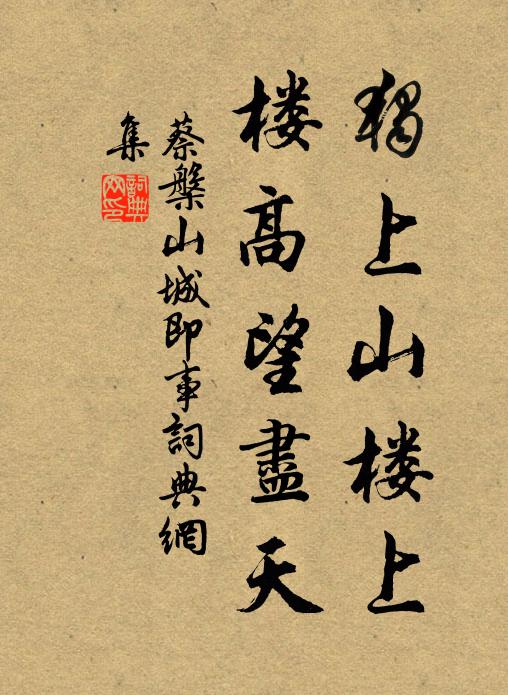 獨上山楼上
楼高望盡天
蔡槃山城即事詞典網
集
詞典
网印